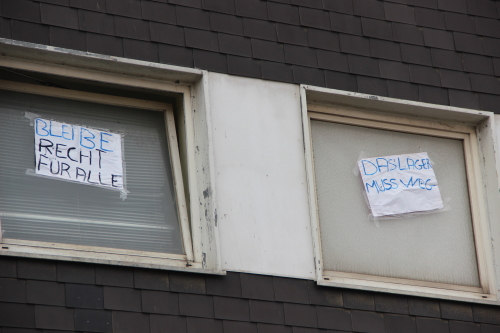 BLEIBE
RECHT
FÜR ALLE
DAS LAGER
MUSS WEG